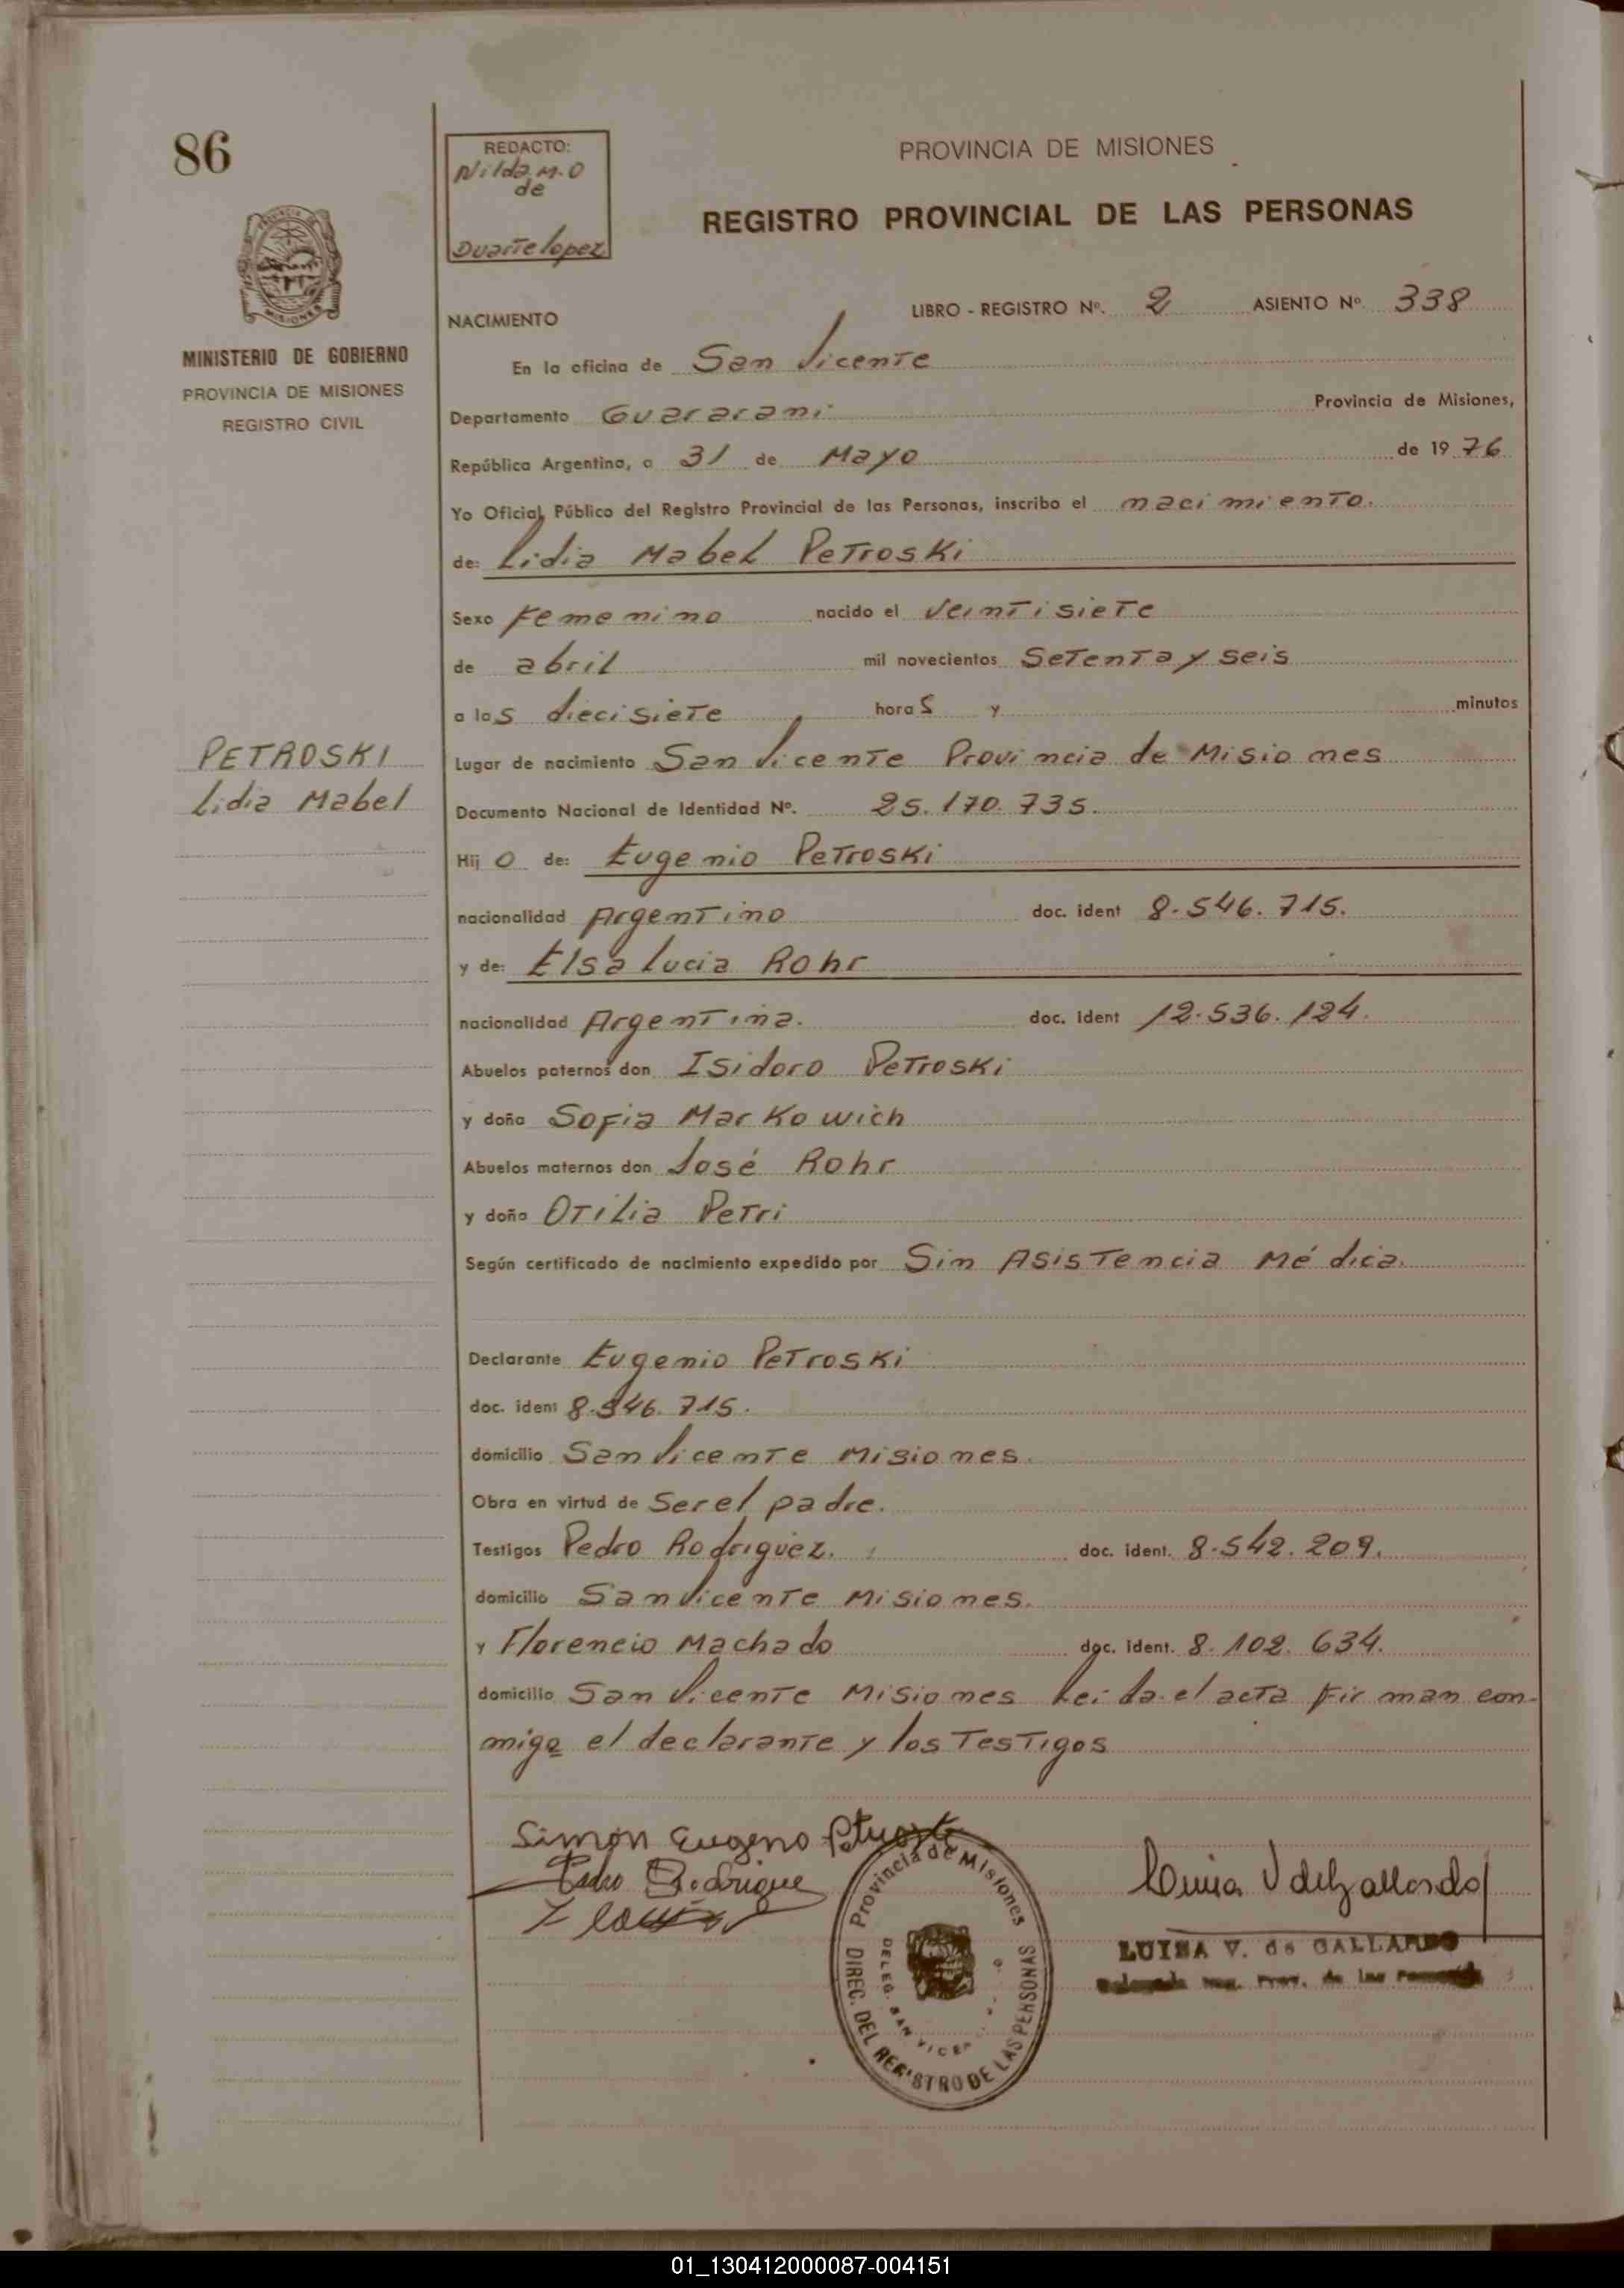 86
REDACTO:
Nilda M.O
de
Duarte lopez
PROVINCIA DE MISIONES
REGISTRO PROVINCIAL DE LAS PERSONAS
MISIONES
MINISTERIO DE GOBIERNO
PROVINCIA DE MISIONES
REGISTRO CIVIL
LIBRO - REGISTRO Nº. 2 ASIENTO Nº 338
NACIMIENTO
En la oficina de San Vicente
Departamento Guararani Provincia de Misiones,
República Argentina, a 31 de Mayo de 1976
Yo Oficial Público del Registro Provincial de las Personas, inscribo el nacimiento.
de: Lidia Mabel Petroski
Sexo Femenino nacido el Veintisiete
de abril mil novecientos Setenta y seis
a las diecisiete horas y minutos
PETROSKI
Lidia Mabel
Lugar de nacimiento San Vicente Provincia de Misiones
Documento Nacional de Identidad Nº. 25.170.735.
Hij o de: Eugenio Petroski
nacionalidad Argentino doc. ident 8.546.715.
y de: Elsa lucia Rohr
nacionalidad Argentina. doc. ident 12.536.124.
Abuelos paternos don Isidoro Petroski
y doña Sofia Markowich
Abuelos maternos don José Rohr
y doña Otilia Petri
Según certificado de nacimiento expedido por Sin Asistencia Médica.
Declarante Eugenio Petroski
doc. ident 8.546.715.
domicilio San Vicente Misiones.
Obra en virtud de Ser el padre.
Testigos Pedro Rodriguez. doc. ident. 8.542.209.
domicilio San Vicente Misiones.
y Florencio Machado doc. ident. 8.102.634.
domicilio San Vicente Misiones Leida el acta firman con-
migo el declarante y los Testigos
Simon Eugeno
Pedro Rodrigue
Luisa V de Gallardo
LUISA V. de GALLARDO
Provincia de Misiones
DIREC. DEL REGISTRO DE LAS PERSONAS
DELEG. SAN VICEN
01_130412000087-004151